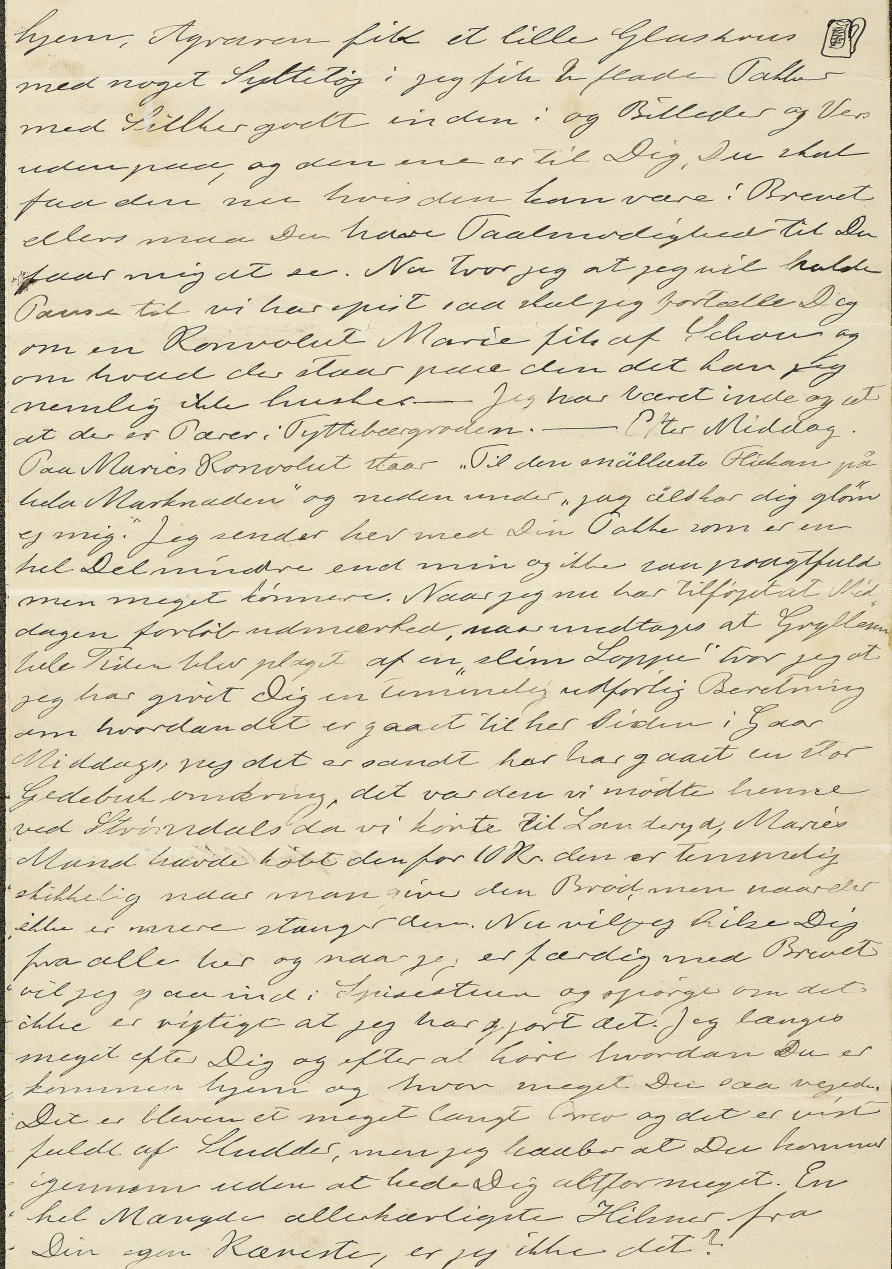 hjem, Agraren fik et lille Glashus
med noget Syltetøj i jeg fik to flade Pakker
med Silkegodt inden i og Billeder og Vers
udenpaa, og den ene er til Dig, Du skal
faa den nu hvis den kan være i Brevet
ellers maa Du have Taalmodighed til Du
faar mig at se. Nu tror jeg at jeg vil holde
Pause til vi har spist saa skal jeg fortælle Dig
om en Konvolut Marie fik af Schou og
om hvad der staar paa den det kan jeg
nemlig ikke huske. — Jeg har været inde og set
at der er Pærer i Tyttebærgrøden. — Efter Middag.
Paa Maries Konvolut staar "Til den snällaste Flickan på
hela Marknaden" og neden under "jag älskar dig glöm
ej mig." Jeg sender her med Din Pakke som er en
hel Del mindre end min og ikke saa pragtfuld
men meget kønnere. Naar jeg nu har tilføjet at Mid
dagen forløb udmærked, naar undtages at Gryllen
hele Tiden blev plaget af en "slim Loppe" tror jeg at
jeg har givet Dig en temmelig udførlig Beretning
om hvordan det er gaaet til her siden i Gaar
Middags, nej det er sandt her har gaaet en stor
Gedebuk omkring, det var den vi mødte henne
ved Strömdals da vi kørte til Landeryd, Maries
Mand havde købt den for 10 Kr. den er temmelig
skikkelig naar man giver den Brød, men naar der
ikke er mere stanger den. Nu vil jeg hilse Dig
fra alle her og naar jeg er færdig med Brevet
vil jeg gaa ind i Spisestuen og spørge om det
ikke er rigtigt at jeg har gjort det. Jeg længes
meget efter Dig og efter at høre hvordan Du er
kommen hjem og hvor meget Du saa vejede.
Det er bleven et meget langt Brev og det er vist
fuldt af Sludder, men jeg haaber at Du kommer
igennem uden at kede Dig altfor meget. En
hel Mængde allerkærligste Hilsner fra
Din egen Kæreste, er jeg ikke det?